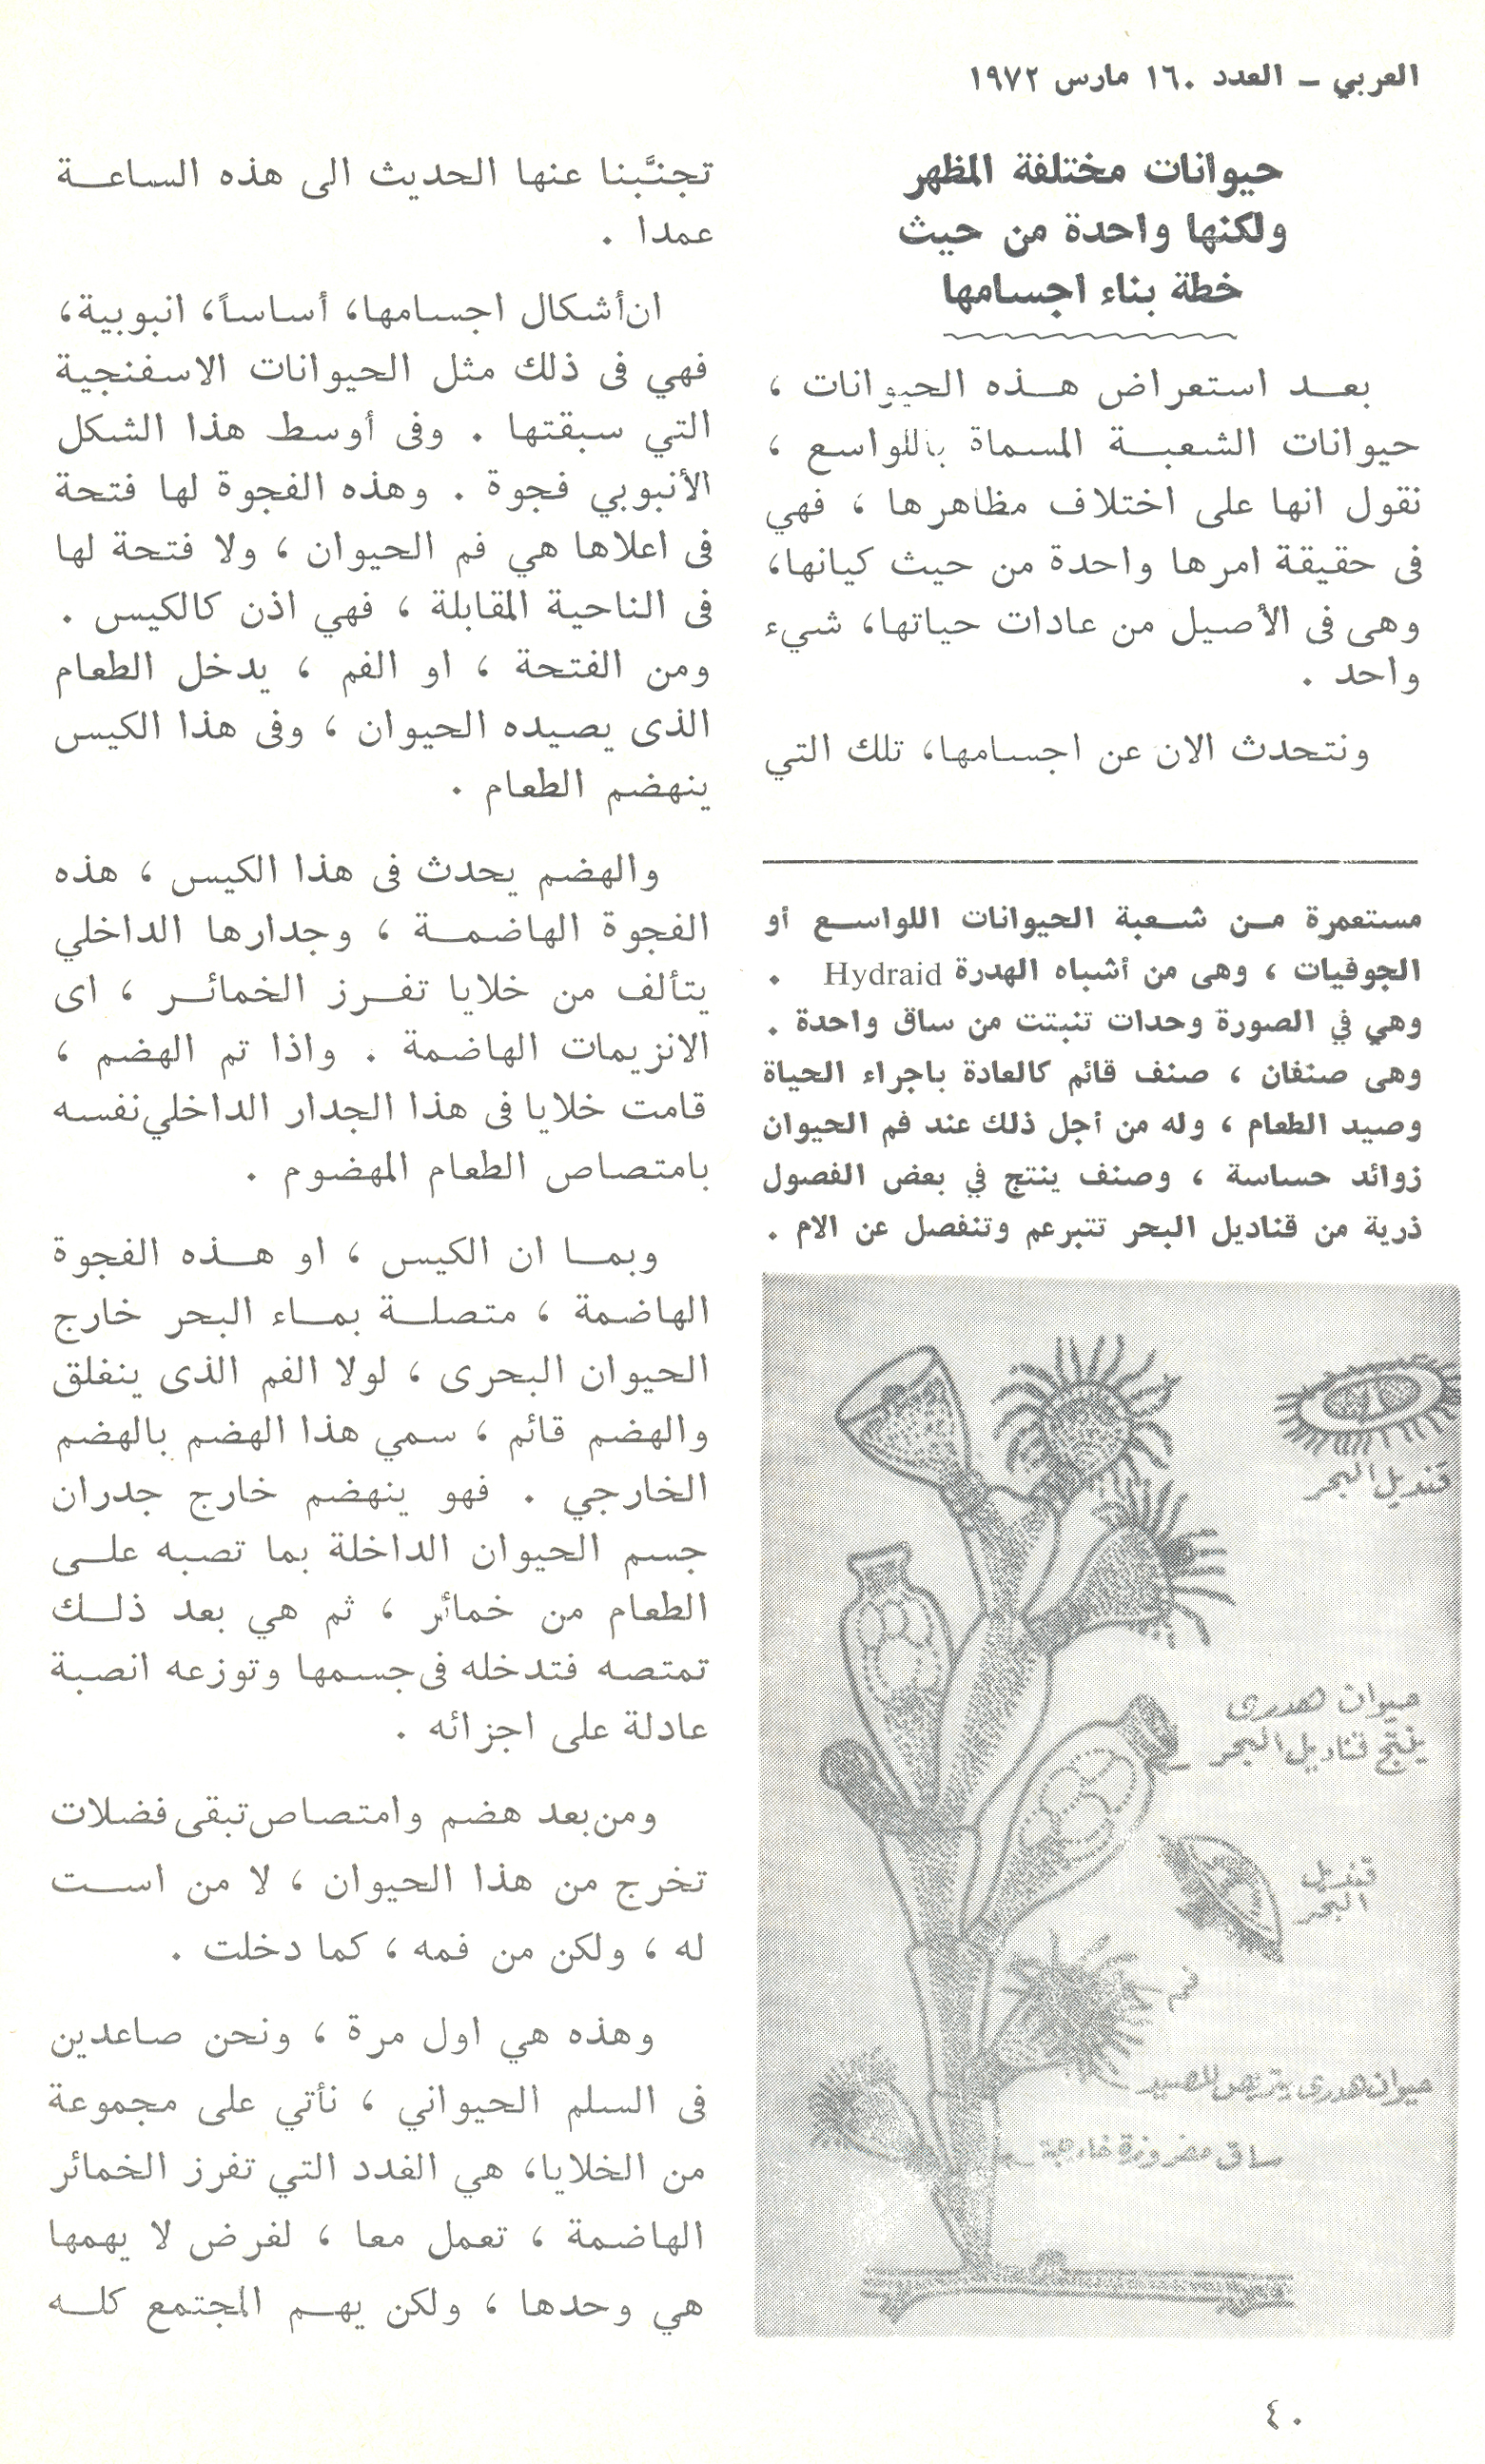 العربي – العدد ١٦٠ مارس ١٩٧٢
حيوانات مختلفة المظهر
ولكنها واحدة من حيث
خطة بناء اجسامها
بعد استعراض هذه الحيوانات ،
حيوانات الشعبة المسماة باللواسع ،
نقول انها على اختلاف مظاهرها ، فهي
فى حقيقة امرها واحدة من حيث كيانها،
وهى فى الأصيل من عادات حياتها، شيء
واحد .
ونتحدث الان عن اجسامها، تلك التي
مستعمرة من شعبة الحيوانات اللواسع أو
الجوفيات ، وهى من أشباه الهدرة Hydraid .
وهي في الصورة وحدات تنبتت من ساق واحدة .
وهى صنفان ، صنف قائم كالعادة باجراء الحياة
وصيد الطعام ، وله من أجل ذلك عند فم الحيوان
زوائد حساسة ، وصنف ينتج في بعض الفصول
ذرية من قناديل البحر تتبرعم وتنفصل عن الام .
قنديل البحر
حيوان هدرى
ينتج قناديل البحر
قنديل
البحر
فم
حيوان هدرى يتربص للصيد
ساق مفروزة خارجية
تجنَّبنا عنها الحديث الى هذه الساعة
عمدا .
ان أشكال اجسامها، أساساً، انبوبية،
فهي فى ذلك مثل الحيوانات الاسفنجية
التي سبقتها . وفى أوسط هذا الشكل
الأنبوبي فجوة . وهذه الفجوة لها فتحة
فى اعلاها هي فم الحيوان ، ولا فتحة لها
فى الناحية المقابلة ، فهي اذن كالكيس .
ومن الفتحة ، او الفم ، يدخل الطعام
الذى يصيده الحيوان ، وفى هذا الكيس
ينهضم الطعام .
والهضم يحدث فى هذا الكيس ، هذه
الفجوة الهاضمة ، وجدارها الداخلي
يتألف من خلايا تفرز الخمائر ، اى
الانزيمات الهاضمة . واذا تم الهضم ،
قامت خلايا فى هذا الجدار الداخلي نفسه
بامتصاص الطعام المهضوم .
وبما ان الكيس ، او هذه الفجوة
الهاضمة ، متصلة بماء البحر خارج
الحيوان البحرى ، لولا الفم الذى ينغلق
والهضم قائم ، سمي هذا الهضم بالهضم
الخارجي . فهو ينهضم خارج جدران
جسم الحيوان الداخلة بما تصبه على
الطعام من خمائر ، ثم هي بعد ذلك
تمتصه فتدخله فى جسمها وتوزعه انصبة
عادلة على اجزائه .
ومن بعد هضم وامتصاص تبقى فضلات
تخرج من هذا الحيوان ، لا من است
له ، ولكن من فمه ، كما دخلت .
وهذه هي اول مرة ، ونحن صاعدين
فى السلم الحيواني ، نأتي على مجموعة
من الخلايا، هي الغدد التي تفرز الخمائر
الهاضمة ، تعمل معا ، لغرض لا يهمها
هي وحدها ، ولكن يهم المجتمع كله
٤٠